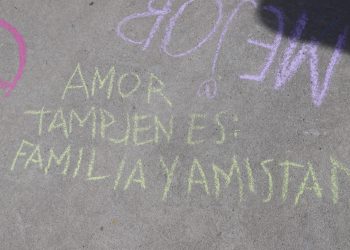 MEJOR
AMOR
TAMPJEN ES:
FAMILIA Y AMISTA